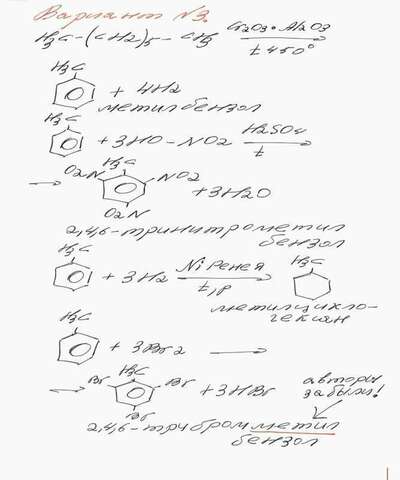 Вариант №3.
H3C-(CH2)5-CH3 Cr2O3·Al2O3
t 450°
H3C
+ 4H2
метилбензол
H3C
+ 3HO-NO2 H2SO4
t
H3C
O2N NO2 + 3H2O
O2N
2,4,6-тринитрометил
бензол
H3C
+ 3H2 Ni Ренея H3C
t, p
метилцикло-
гексан
H3C
+ 3Br2
H3C
Br Br + 3HBr
Br
авторы
забыли!
2,4,6-трибромметил
бензол